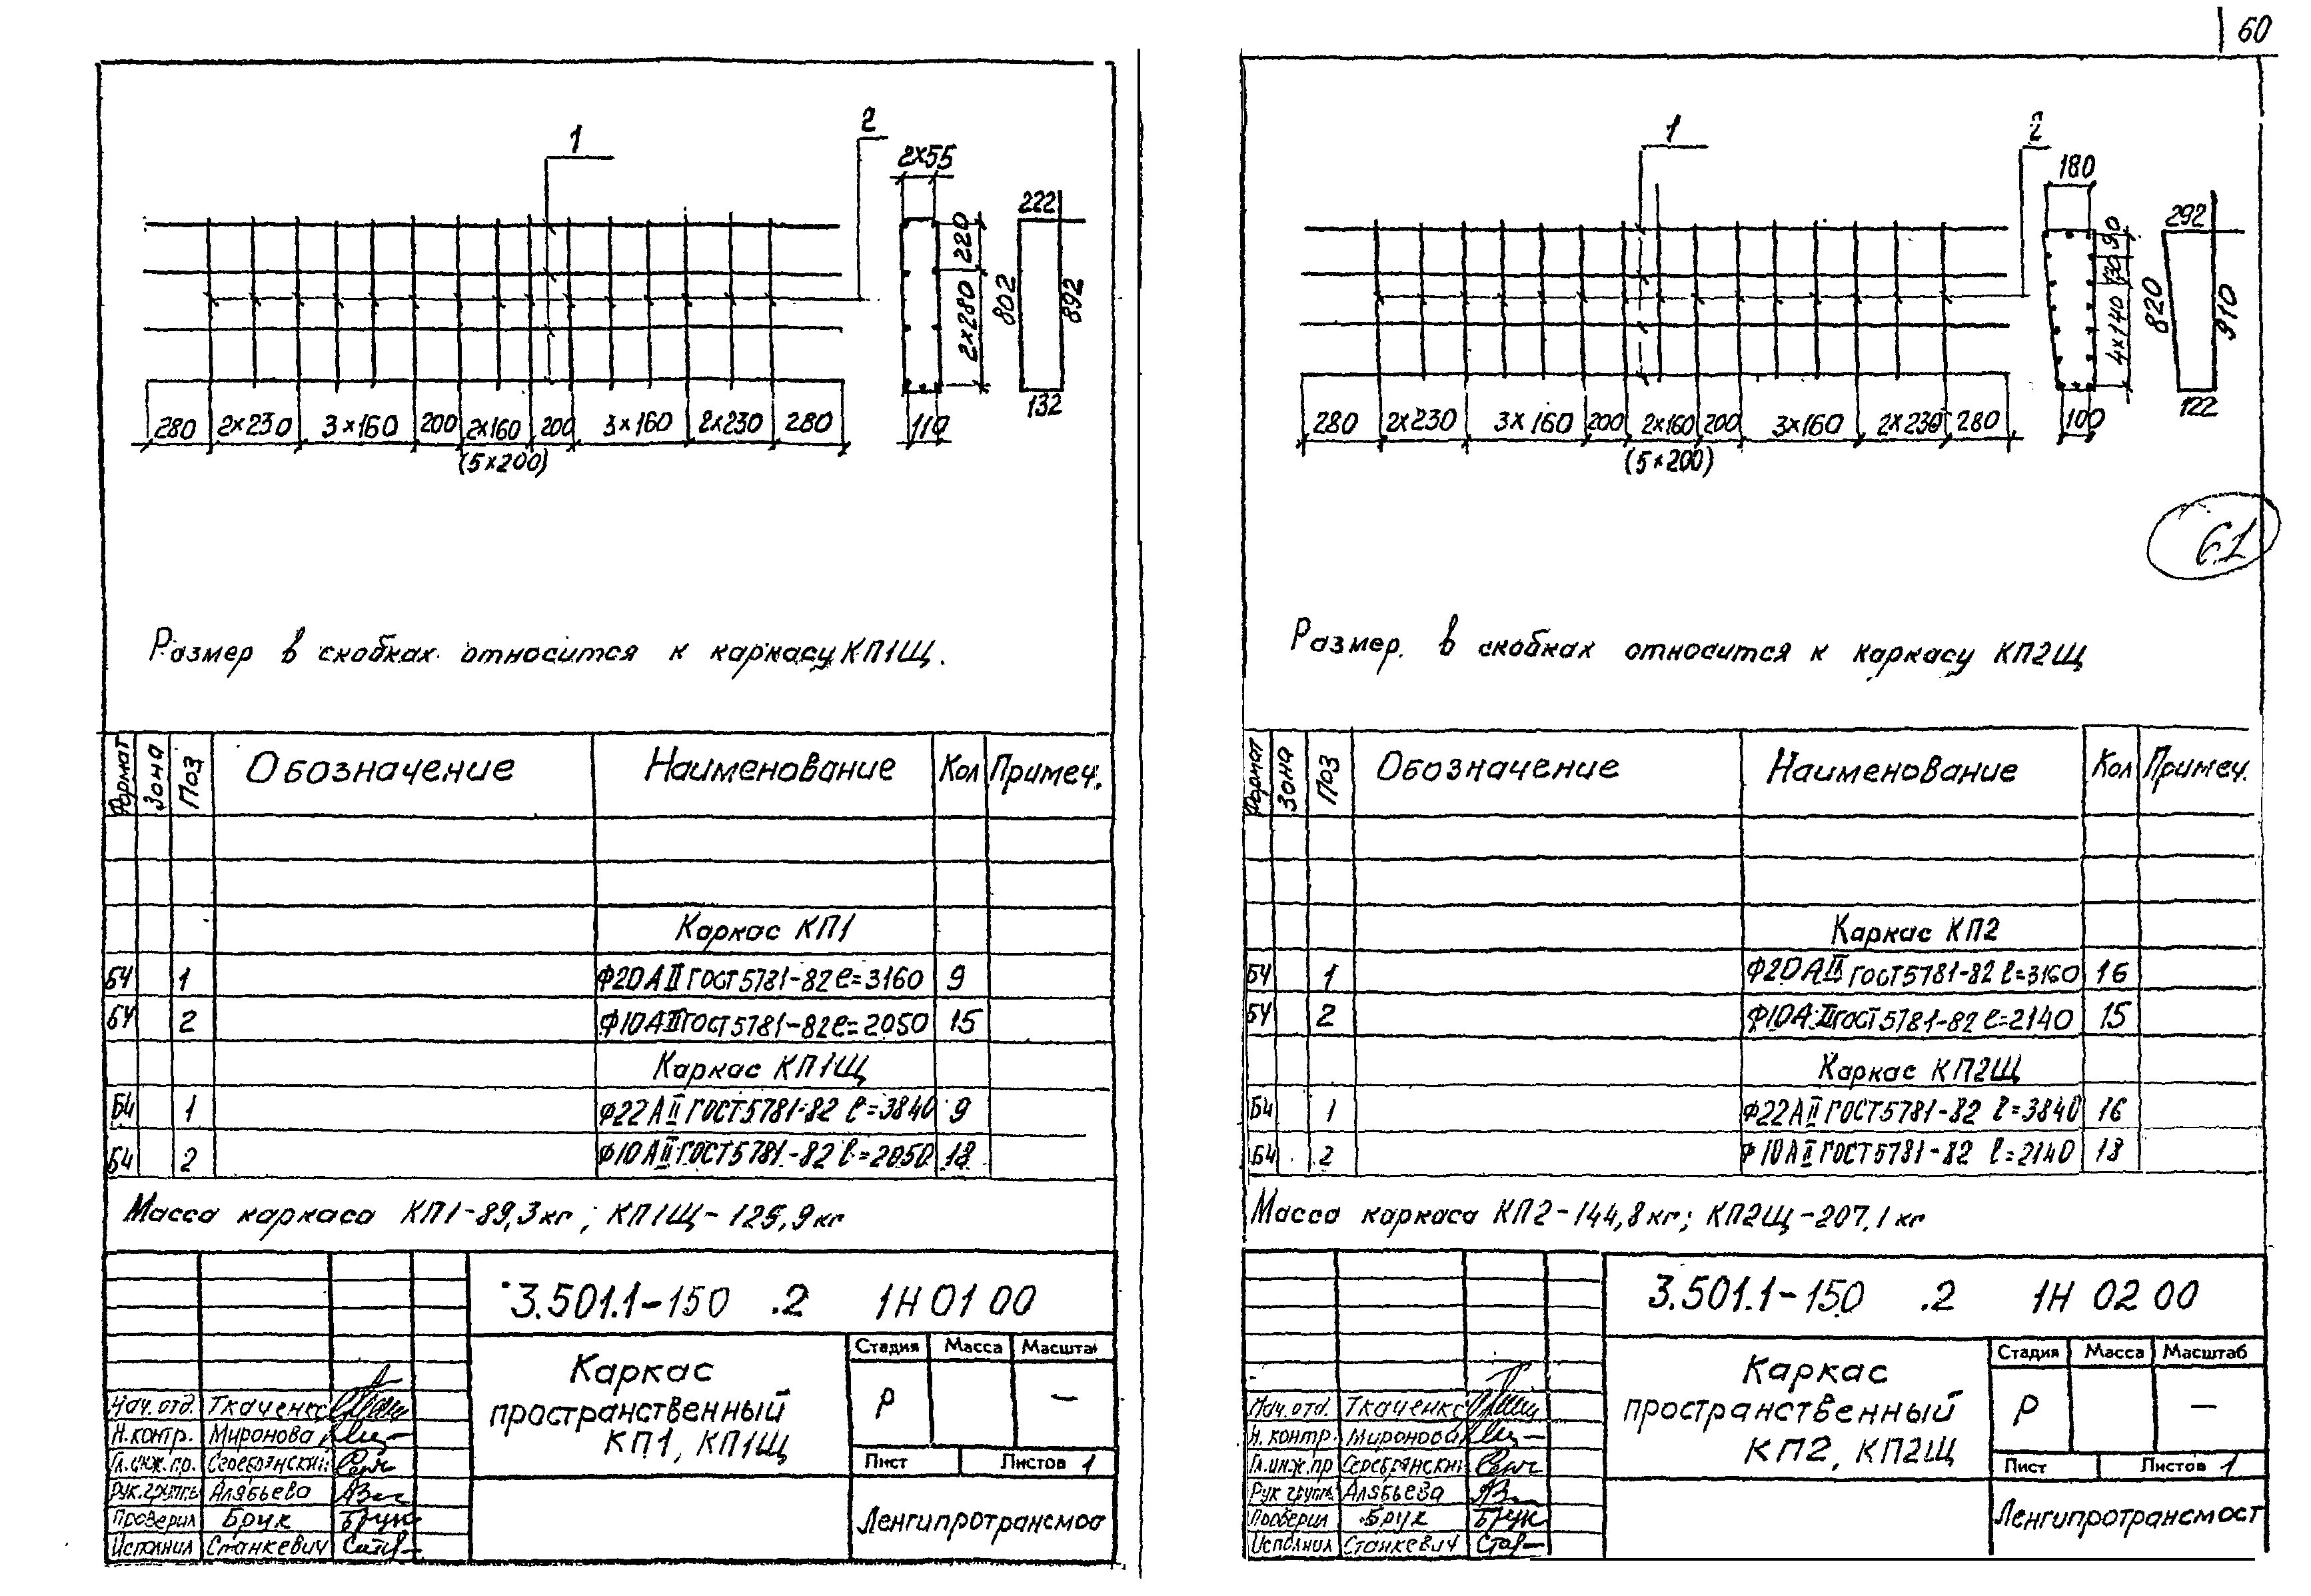 60
1
2
2×55
222
220
2×280
802
892
132
110
280 2×230 3×160 200 2×160 200 3×160 2×230 280
(5×200)
Размер в скобках относится к каркасу КП1Щ.
Формат Зона Поз Обозначение Наименование Кол Примеч.
Каркас КП1
БЧ 1 Ф20АII ГОСТ5781-82 ℓ=3160 9
БЧ 2 Ф10АII ГОСТ5781-82 ℓ=2050 15
Каркас КП1Щ
БЧ 1 Ф22АII ГОСТ5781-82 ℓ=3840 9
БЧ 2 Ф10АII ГОСТ5781-82 ℓ=2050 18
Масса каркаса КП1-89,3кг; КП1Щ-125,9кг
3.501.1-150 .2 1Н 01 00
Каркас
пространственный
КП1, КП1Щ
Стадия Масса Масштаб
Р —
Лист Листов 1
Ленгипротрансмос
Нач. отд. Ткаченко
Н. контр. Миронова
Гл. инж. пр. Серебрянский
Рук. группы Алябьева
Проверил Брук
Исполнил Станкевич
1
2
180
292
90
130
4×140
820
910
122
100
280 2×230 3×160 200 2×160 200 3×160 2×230 280
(5×200)
61
Размер в скобках относится к каркасу КП2Щ
Формат Зона Поз Обозначение Наименование Кол Примеч.
Каркас КП2
БЧ 1 Ф20АII ГОСТ5781-82 ℓ=3160 16
БЧ 2 Ф10АII ГОСТ5781-82 ℓ=2140 15
Каркас КП2Щ
БЧ 1 Ф22АII ГОСТ5781-82 ℓ=3840 16
БЧ 2 Ф10АII ГОСТ5781-82 ℓ=2140 18
Масса каркаса КП2-144,8кг; КП2Щ-207,1кг
3.501.1-150 .2 1Н 02 00
Каркас
пространственный
КП2, КП2Щ
Стадия Масса Масштаб
Р —
Лист Листов 1
Ленгипротрансмост
Нач. отд. Ткаченко
Н. контр. Миронова
Гл. инж. пр Серебрянский
Рук группы Алябьева
Проверил Брук
Исполнил Станкевич